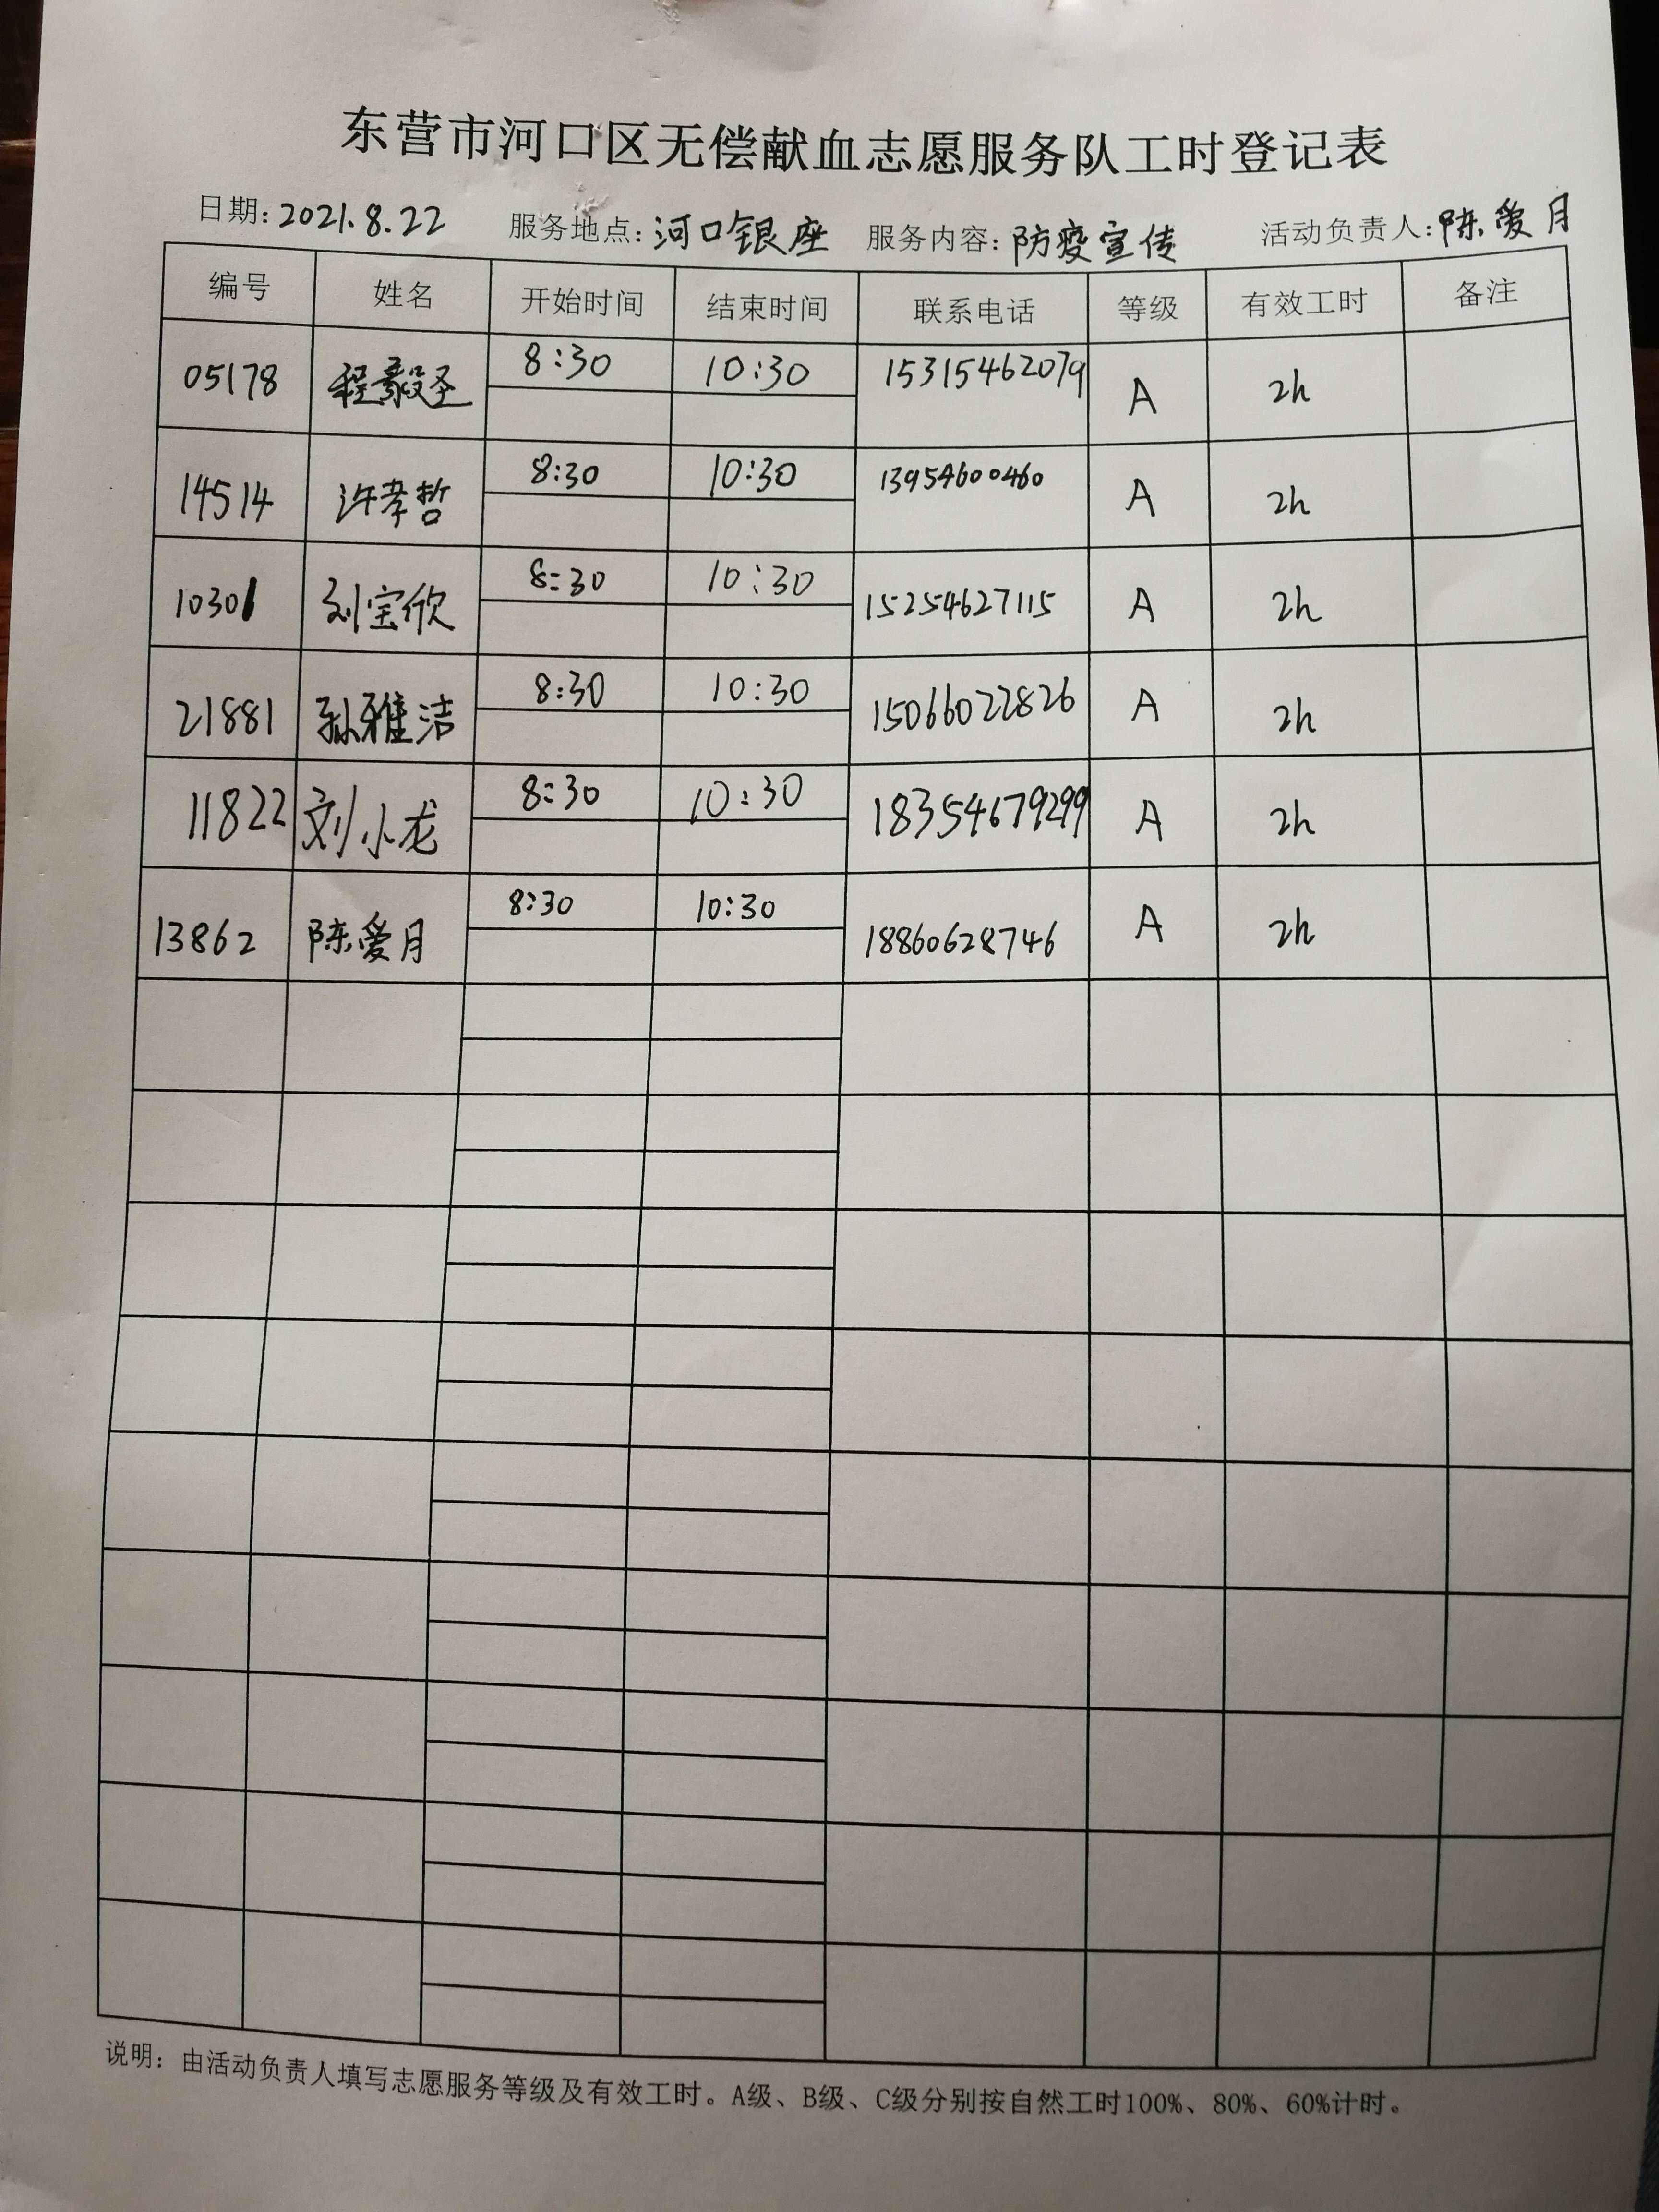 东营市河口区无偿献血志愿服务队工时登记表
日期:2021.8.22 服务地点:河口银座 服务内容:防疫宣传 活动负责人:陈爱月
编号 姓名 开始时间 结束时间 联系电话 等级 有效工时 备注
05178 程毅圣 8:30 10:30 15315462079 A 2h
14514 许孝哲 8:30 10:30 13954600460 A 2h
10301 刘宝欣 8:30 10:30 15254627115 A 2h
21881 孙雅洁 8:30 10:30 15066022826 A 2h
11822 刘小龙 8:30 10:30 18354679299 A 2h
13862 陈爱月 8:30 10:30 18860628746 A 2h
说明：由活动负责人填写志愿服务等级及有效工时。A级、B级、C级分别按自然工时100%、80%、60%计时。